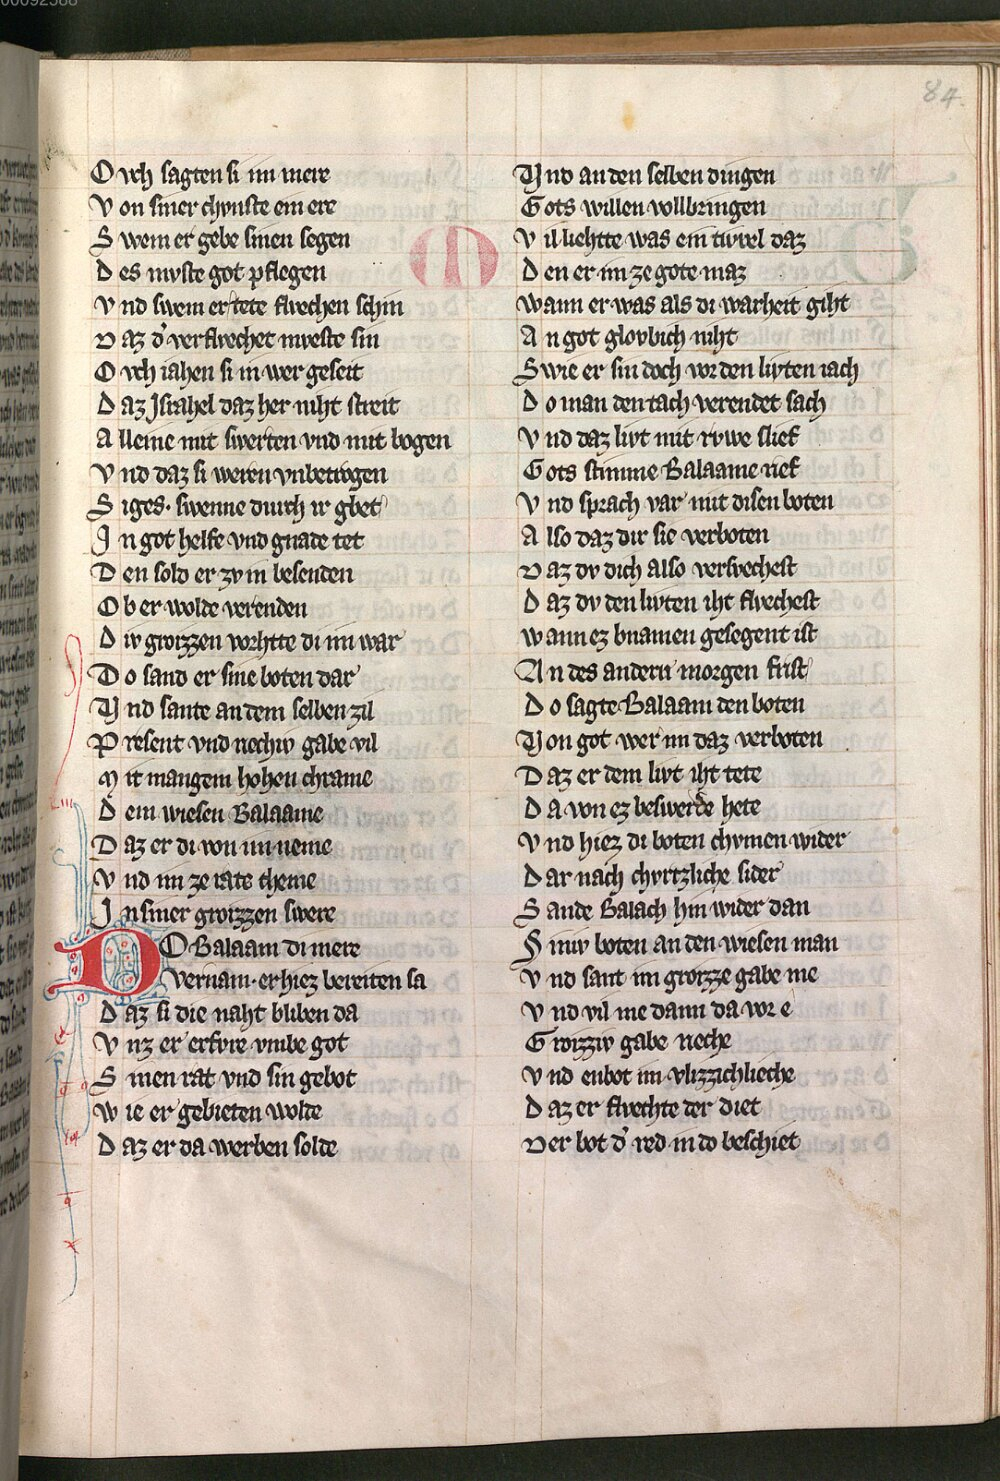 84.
O vch sagten si im mere
V on siner chvnste ein ere
S wem er gebe sinen segen
D es mvste got pflegen
V nd swem er tete flvechen schin
D az d' verflvechet mveste sin
O vch iahen si in wer geseit
D az Jsrahel daz her niht streit
A lleine mit swerten vnd mit bogen
V nd daz si weren vnbetrogen
S iges. swenne durch ir gbet
J n got helfe vnd gnade tet
D en sold er zv in besenden
O b er wolde verenden
D iv groizzen vorhtte di im war
D o sand er sine boten dar
V nd sante an dem selben zil
P resent vnd rechiv gabe vil
M it mangem hohen chrame
D em wisen Balaame
D az er di von im neme
V nd im ze rate cheme
J n siner groizzen swere
D O Balaam di mere
Vernam. er hiez bereiten sa
D az si die naht bliben da
V nz er erfvre vmbe got
S inen rat vnd sin gebot
W ie er gebieten wolde
D az er da werben solde
V nd an den selben dingen
G ots willen vollbringen
V il liehtte was ein tivvel daz
D en er im ze gote maz
Wann er was als di warheit giht
A n got glovbich niht
S wie er sin doch vor den livten iach
D o man den tach verendet sach
V nd daz livt mit rvwe slief
G ots stimme Balaame rief
V nd sprach var mit disen boten
A lso daz dir sie verboten
D az dv dich also versvechest
D az dv den livten iht flvechest
Wann ez bnamen gesegent ist
A n des andern morgen frist
D o sagte Balaam den boten
V on got wer im daz verboten
D az er dem livt iht tete
D a von ez beswerde hete
V nd hiez di boten chvmen wider
D ar nach chvrtzliche sider
S ande Balach hin wider dan
S iniv boten an den wisen man
V nd sant im groizze gabe me
V nd vil me dann da vor e
G roizziv gabe reche
V nd enbot im vlizzichlieche
D az er flvechte der diet
D er bot d' red in do beschiet